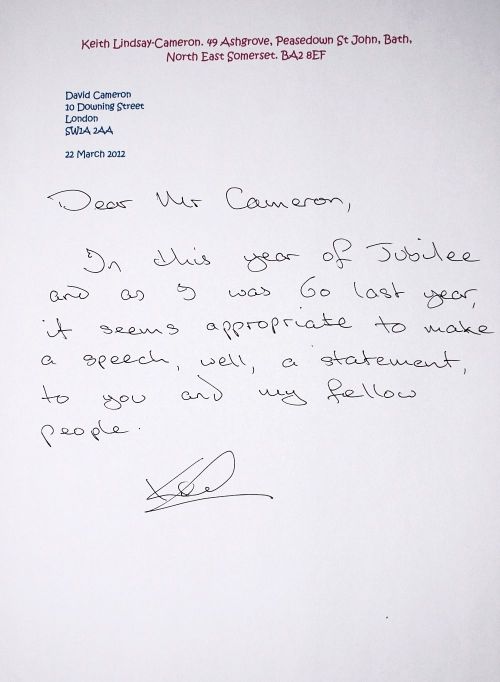 Keith Lindsay-Cameron. 49 Ashgrove, Peasedown St John, Bath,
North East Somerset. BA2 8EF
David Cameron
10 Downing Street
London
SW1A 2AA
22 March 2012
Dear Mr Cameron,
In this year of Jubilee
and as I was 60 last year,
it seems appropriate to make
a speech, well, a statement,
to you and my fellow
people.